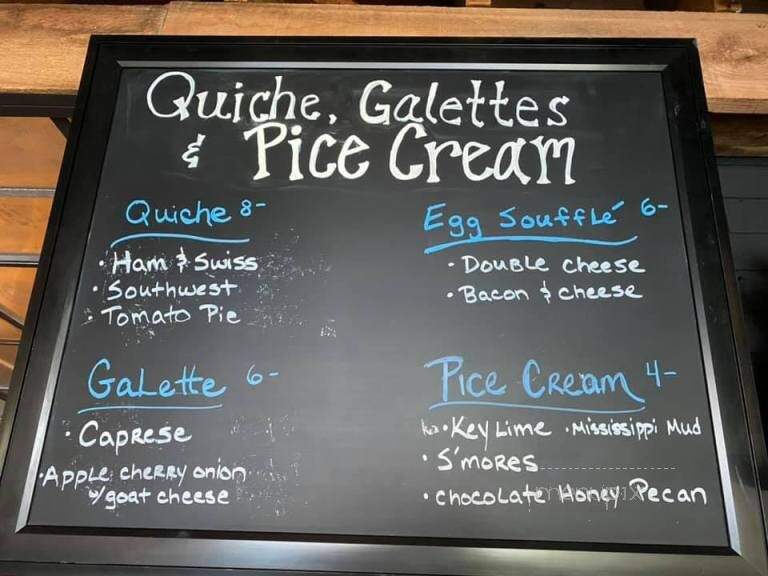 Quiche, Galettes
& Pice Cream
Quiche 8-
• Ham & Swiss
• Southwest
Tomato Pie
Egg Soufflé 6-
• Double cheese
• Bacon & cheese
Galette 6-
• Caprese
• Apple cherry onion
w/goat cheese
Pice Cream 4-
• Key Lime • Mississippi Mud
• S'mores
• chocolate Honey Pecan